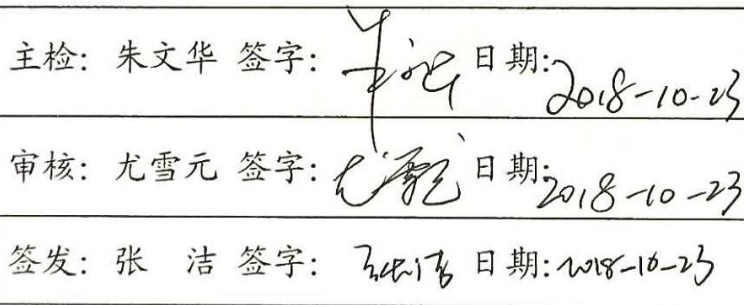 主检: 朱文华 签字: 朱文华 日期: 2018-10-23
审核: 尤雪元 签字: 尤雪元 日期: 2018-10-23
签发: 张 洁 签字: 张洁 日期: 2018-10-23